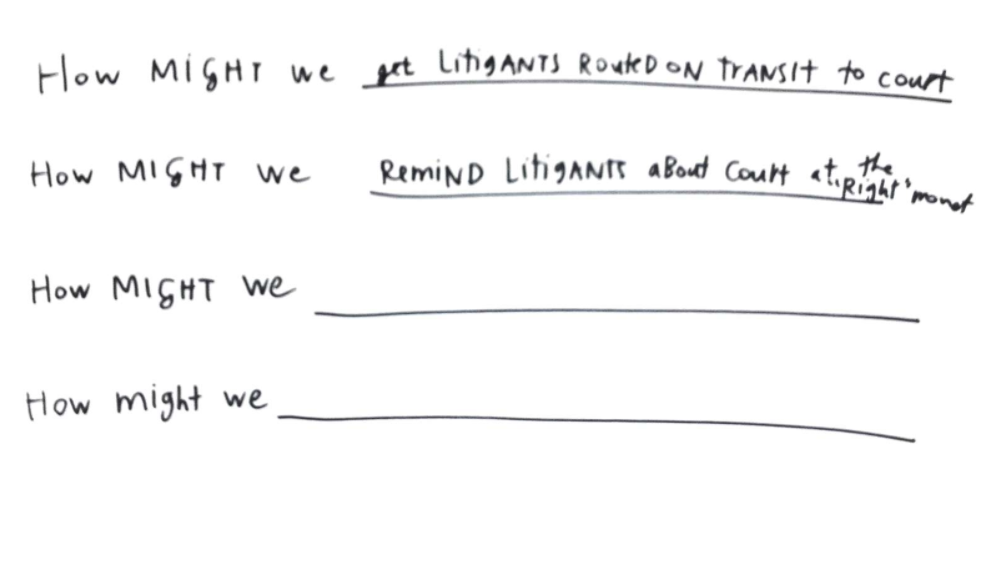 How MIGHT we get LitigANTS RoutED ON TRANSIT to court
How MIGHT we REMIND LitigANTS aBout Court at the "Right" momet
How MIGHT we
How might we